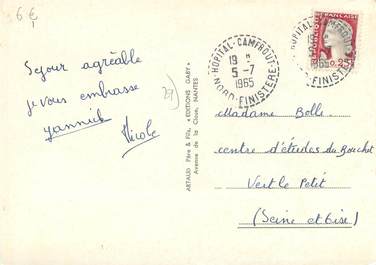 6 €
Sejour agréable
je vous embrasse
yannick
Nicole
29)
ARTAUD Père & Fils, "EDITIONS GABY"
Avenue de la Close, NANTES
HOPITAL-CAMFROUT
19 H
5-7
1965
NORD-FINISTERE
HOPITAL-CAMFROUT
1965
FINISTERE
FRANÇAISE
0,25
Madame Belle
centre d'études du Bouchet
Vert le Petit
(Seine et Oise)